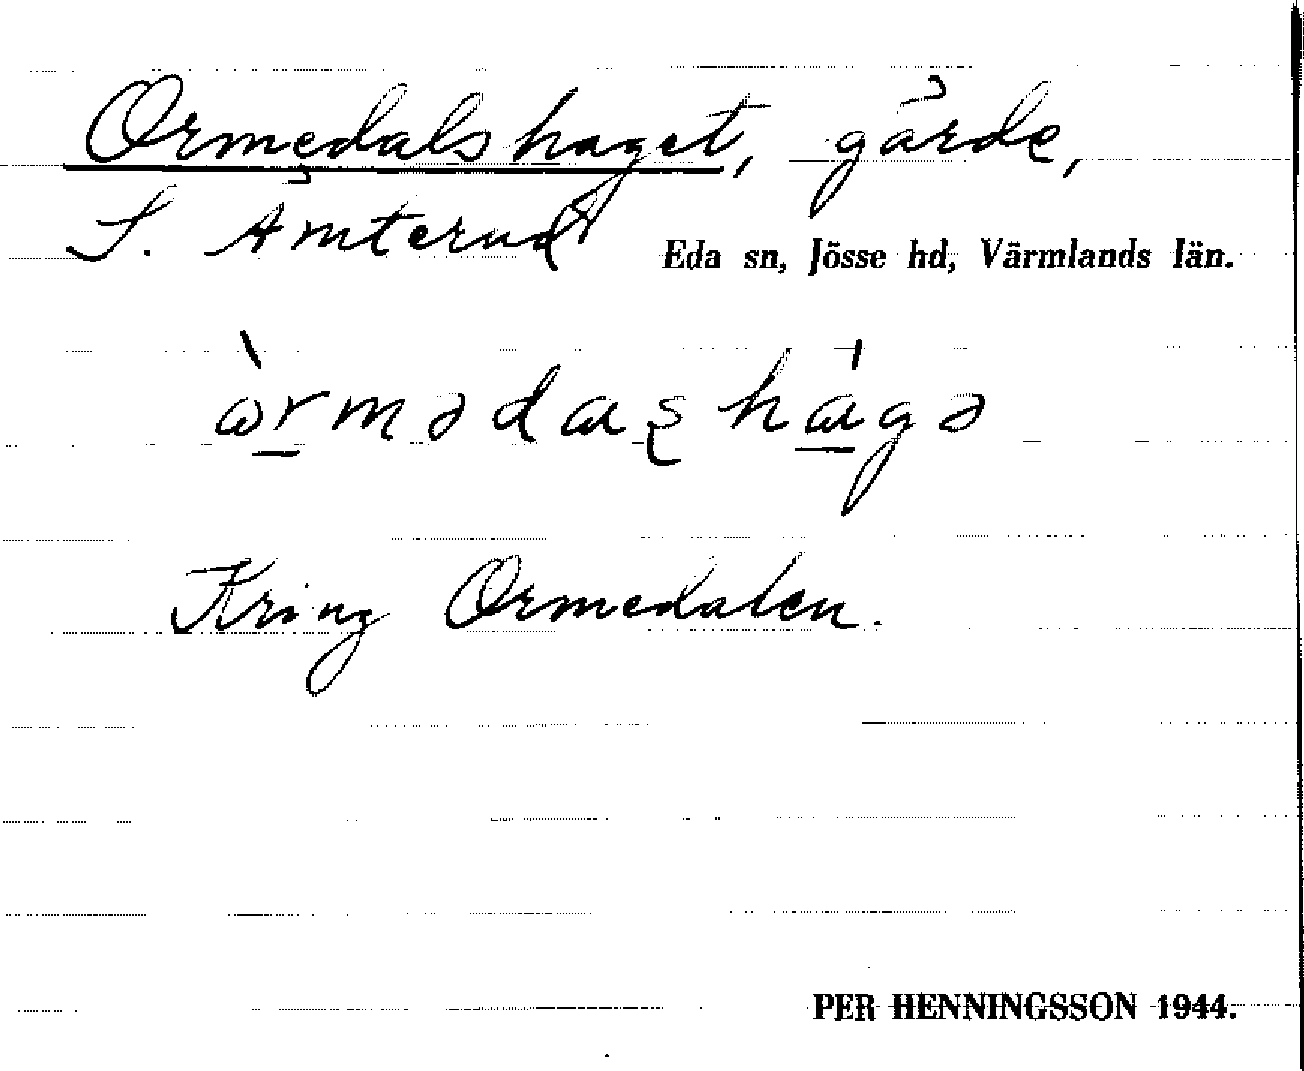 Ormedalshaget, gärde,
S. Åmterud Eda sn, Jösse hd, Värmlands län.
Kring Ormedalen.
PER HENNINGSSON 1944.